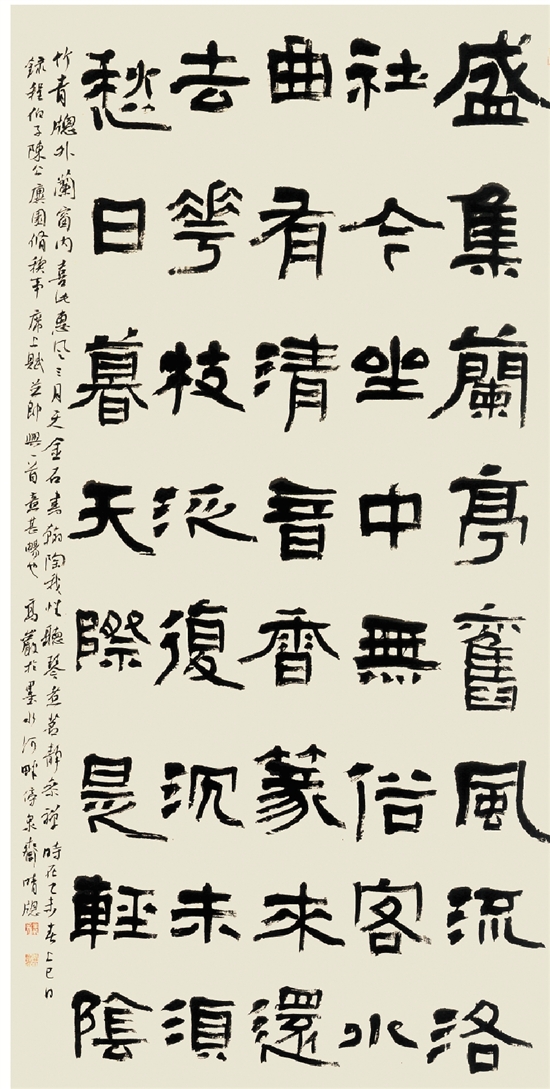 盛集蘭亭舊風流洛
社今坐中無俗客水
曲有清音香篆來還
去花枝泛復沉未須
愁日暮天際是輕陰
竹青牕外蘭窗内喜沐惠風三月天金石書翰陶我性聽琴煮茗静參禪時在乙未春上巳日
録程伯子陳公廙園脩禊事席上賦並即興一首意甚暢也高巖於墨水河畔停泉齋晴牕